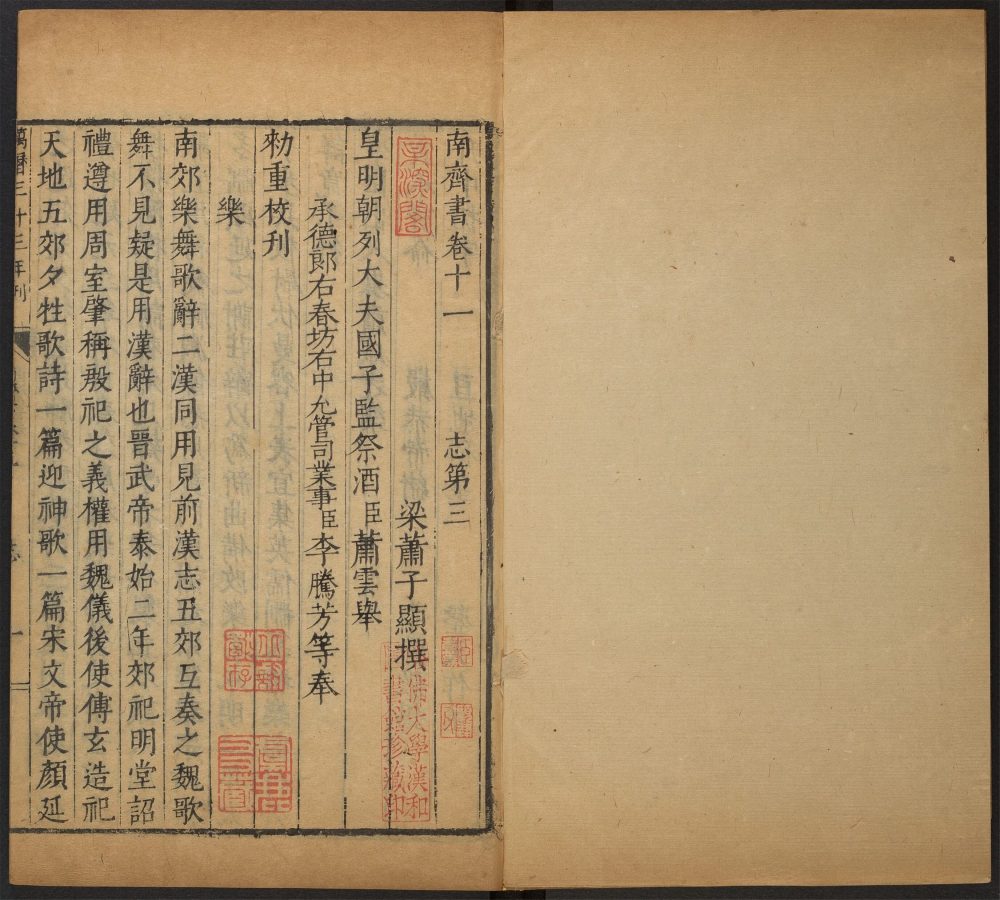 南齊書卷十一　志第三
梁蕭子顯撰
皇明朝列大夫國子監祭酒臣蕭雲舉
承德郎右春坊右中允管司業事臣李騰芳等奉
勑重校刊
樂
南郊樂舞歌辭二漢同用見前漢志五郊互奏之魏歌
舞不見疑是用漢辭也晉武帝泰始二年郊祀明堂詔
禮遵用周室肇稱殷祀之義權用魏儀後使傅玄造祀
天地五郊夕牲歌詩一篇迎神歌一篇宋文帝使顏延
萬曆三十三年刊
志
一
哈佛大學漢和
圖書館珍藏印